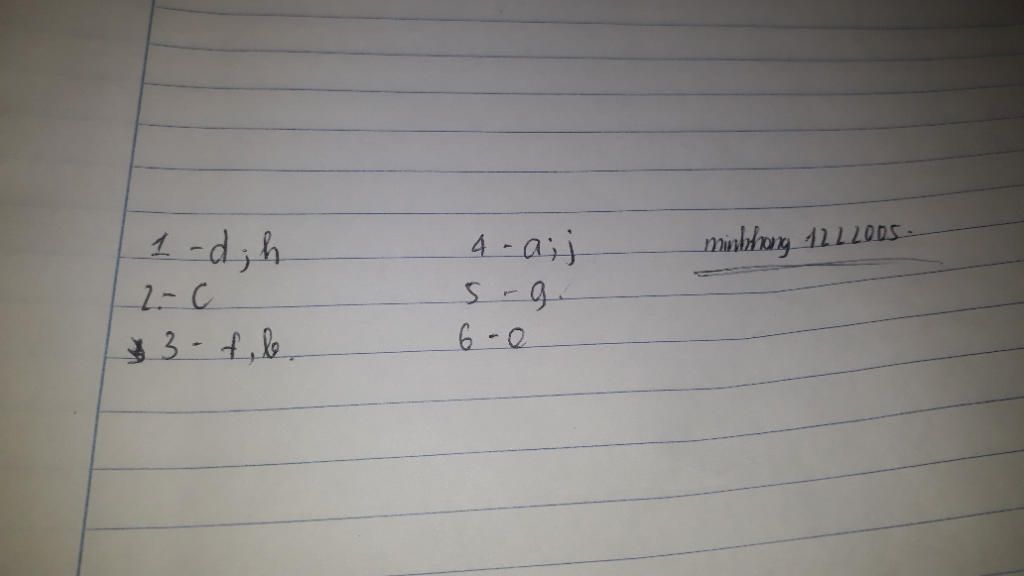 1 - d; h
2. - c
3 - f, b.
4 - a; j
5 - g.
6 - e
minhhang 1222005.